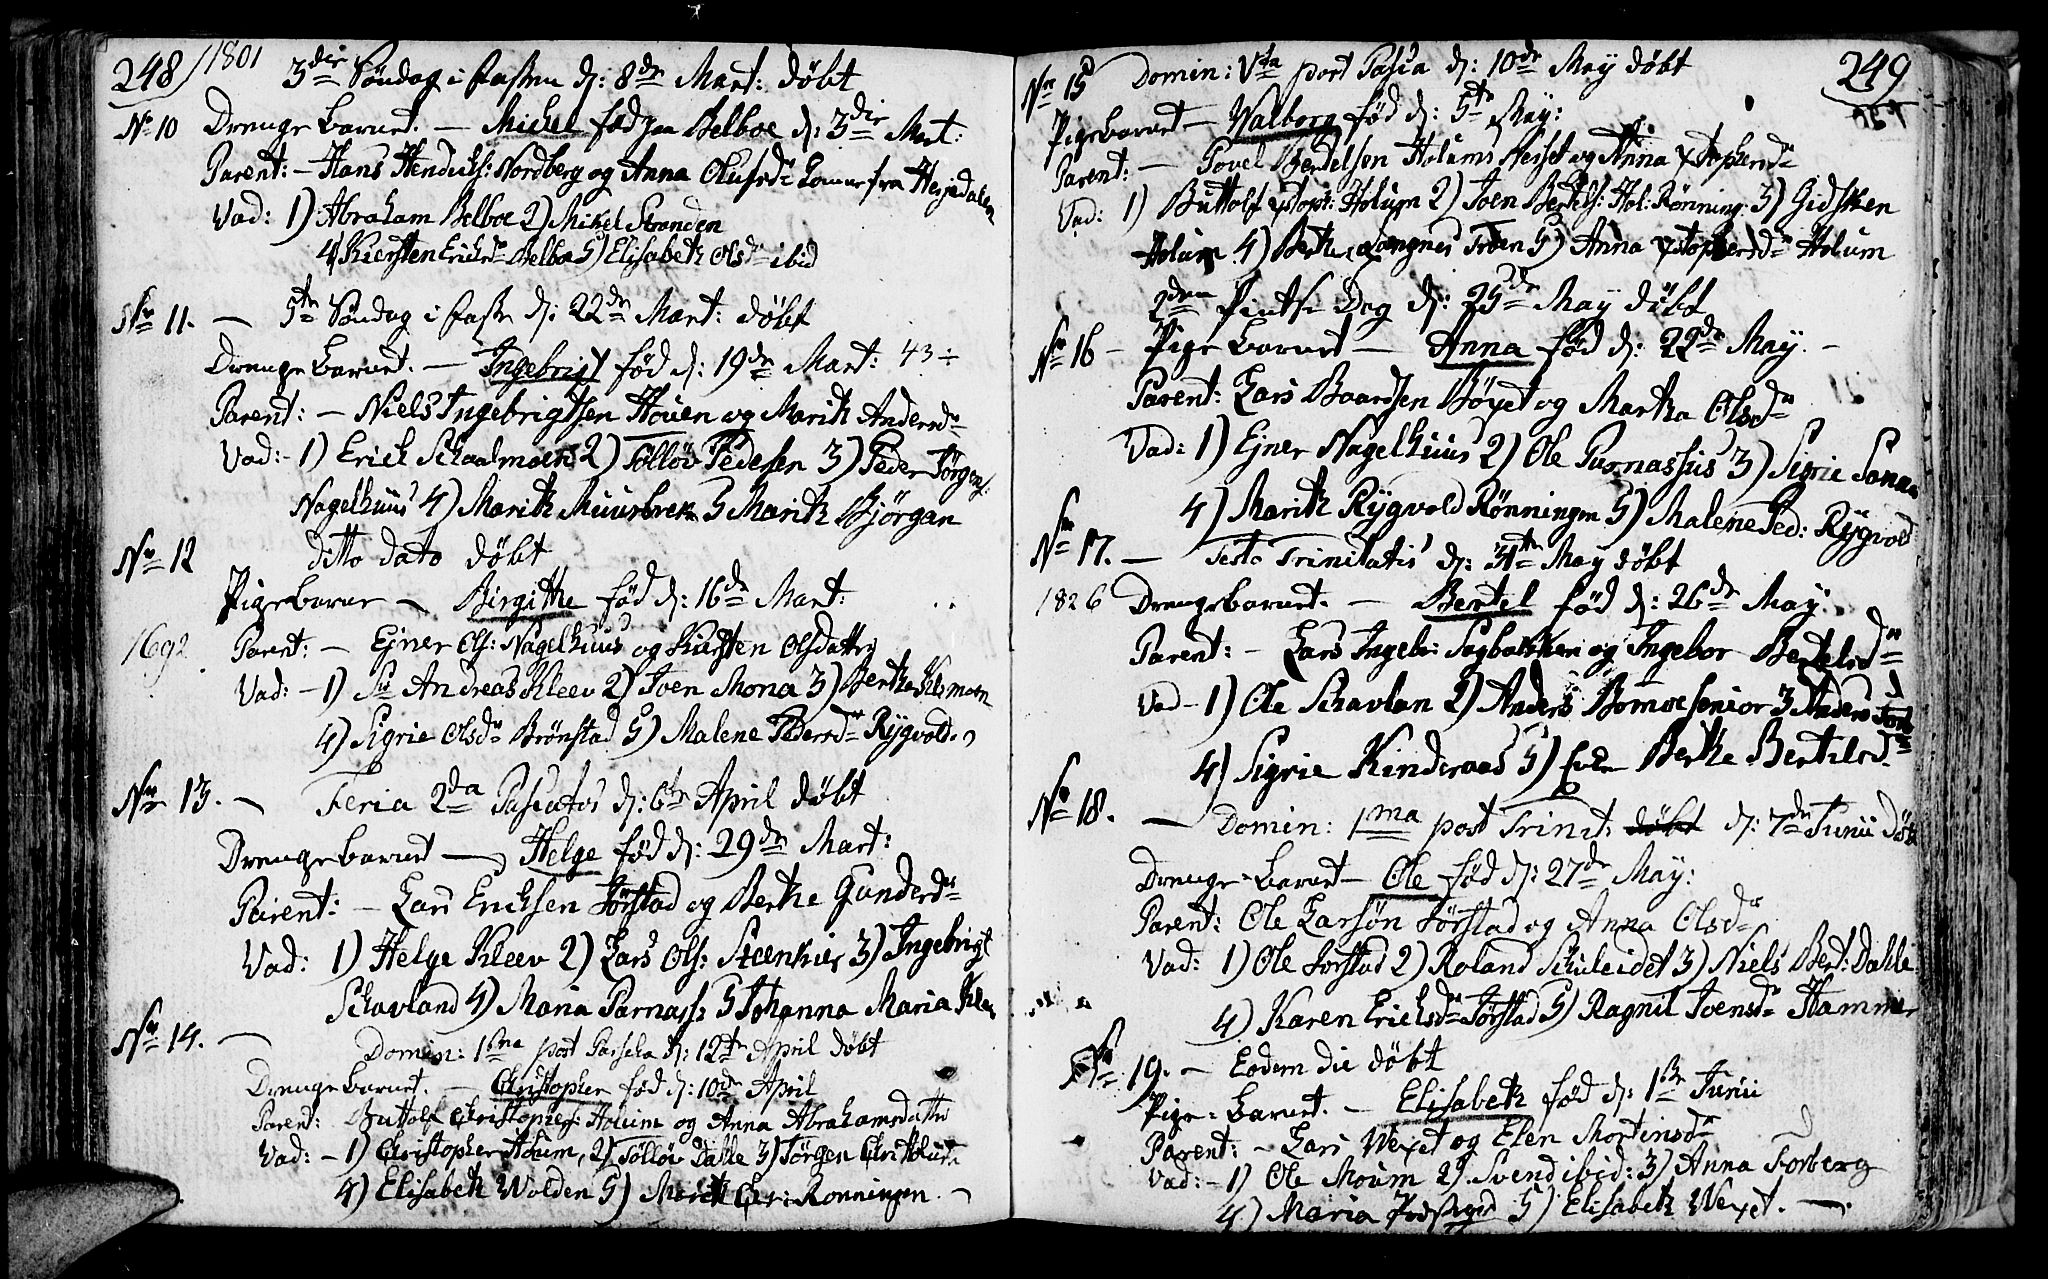 248 / 1801
3die Søndag i Fasten d: 8de Mart: døbt
No 10 Drenge barnet. — Michel fød paa Belboe d: 3die Mart:
Parent: — Hans Hendrichs: Nordberg og Anna Olufsdr Komne fra Herjedalen
Vad: 1) Abraham Belboe 2) Mikel Stranden
4) Kiersten Erichsdr Belboe 5) Elisabeth Olsdr ibid
Nr 11. — 5te Søndag i Faste d: 22de Mart: døbt
Drenge barnet. — Ingebrigt fød d: 19de Mart: 43 ÷
Parent: — Niels Ingebrigtsen Houen og Marith Andersdr
Vad: - 1) Erich Schaalmoen 2) Tølløv Pedersen 3) Peder Jørgens:
Nagelhuus 4) Marith Muurbrek 5 Marith Bjørgan
Nr 12 ditto dato døbt
Pigebarne — Birgithe fød d: 16de Mart:
1692 Parent: — Ejner Ols: Nagelhuus og Kiersten Olsdatter
Vad: - 1) Sr Andreas Kleev 2) Joen Mona 3) Berthe Kelsmoen
4) Sigrie Olsdr Brønstad 5) Malene Pedersdr Rygvold
Nr 13. — Feria 2da Paschatos d: 6te April døbt
Drengebarnet — Helge fød d: 29de Mart:
Parent: — Lars Erichsen Jørstad og Berthe Gundersdr
Vad: 1) Helge Kleev 2) Lars Ols: Steenkier 3) Ingebrigt
Schavland 4) Maria Parnass: 5 Johanna Maria Klev
Nr 14. — Domin: 1ma post Pascha d: 12te April døbt
Drenge barnet. — Christopher fød d: 10de April
Parent: Buttolf Christophers: Holum og Anna Abrahamsdatter
Vad: - 1) Christopher Holum, 2) Tølløv Dahle 3) Jørgen Chr: Holum
4) Elisabeth Wolden 5) Marith Chr: Rønningen. —
249
Nr 15 Domin: Vta post Pasca d: 10de May døbt
Pigebarnet — Walborg fød d: 5te May:
Parent: — Povel Bertelsen Holums Hejset og Anna Xstophersdr
Vad: 1) Buttolf Xstoph: Holum 2) Joen Bertels: Hol: Rønning: 3) Gidsken
Holum 4) Berthe Longnes Troen 5) Anna Xstophersdr Holum
2den Pintse Dag d: 25de May døbt
Nr 16 — Pige barnet — Anna fød d: 22de May. —
Parent: Lars Baardsen Bøxet og Martha Olsdr
Vad: 1) Ejner Nagelhuus 2) Ole Parnassus 3) Sigrie Sanne
4) Marith Rygvold Rønningen 5) Malene Ped: Rygvold
Nr 17. — Festo Trinitatis d: 31te May døbt
1826 Drengebarnet. — Bertel fød d: 26de May.
Parent: — Lars Ingebr: Sagbakken og Ingebor Bertelsdr
Vad - 1) Ole Schavlan 2) Anders Bomoe senior 3 Anders
4) Sigrie Kinderaas 5) Berthe Bertelsdr
Nr 18. — Domin: 1ma post Trinit: døbt d: 7de Junii døbt
Drenge-barnet — Ole fød d: 27de May:
Parent: Ole Larsøn Jørstad og Anna Olsdr
Vad: 1) Ole Jorstad 2) Roland Schuleidet 3) Niels Bert: Dahle
4) Karen Erichsdr Jørstad 5) Ragnil Joensdr Hammer
Nr 19. — Eodem die døbt
Pige-barnet. — Elisabeth fød d: 1ste Junii
Parent: — Lars Wexet og Elen Mortensdr
Vad: - 1) Ole Moum 2) Svend ibid: 3) Anna Forberg
4) Maria 5) Elisabeth Wexet. —